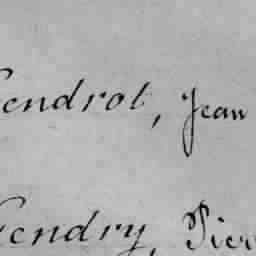 endrot, Jean
endry, Pier